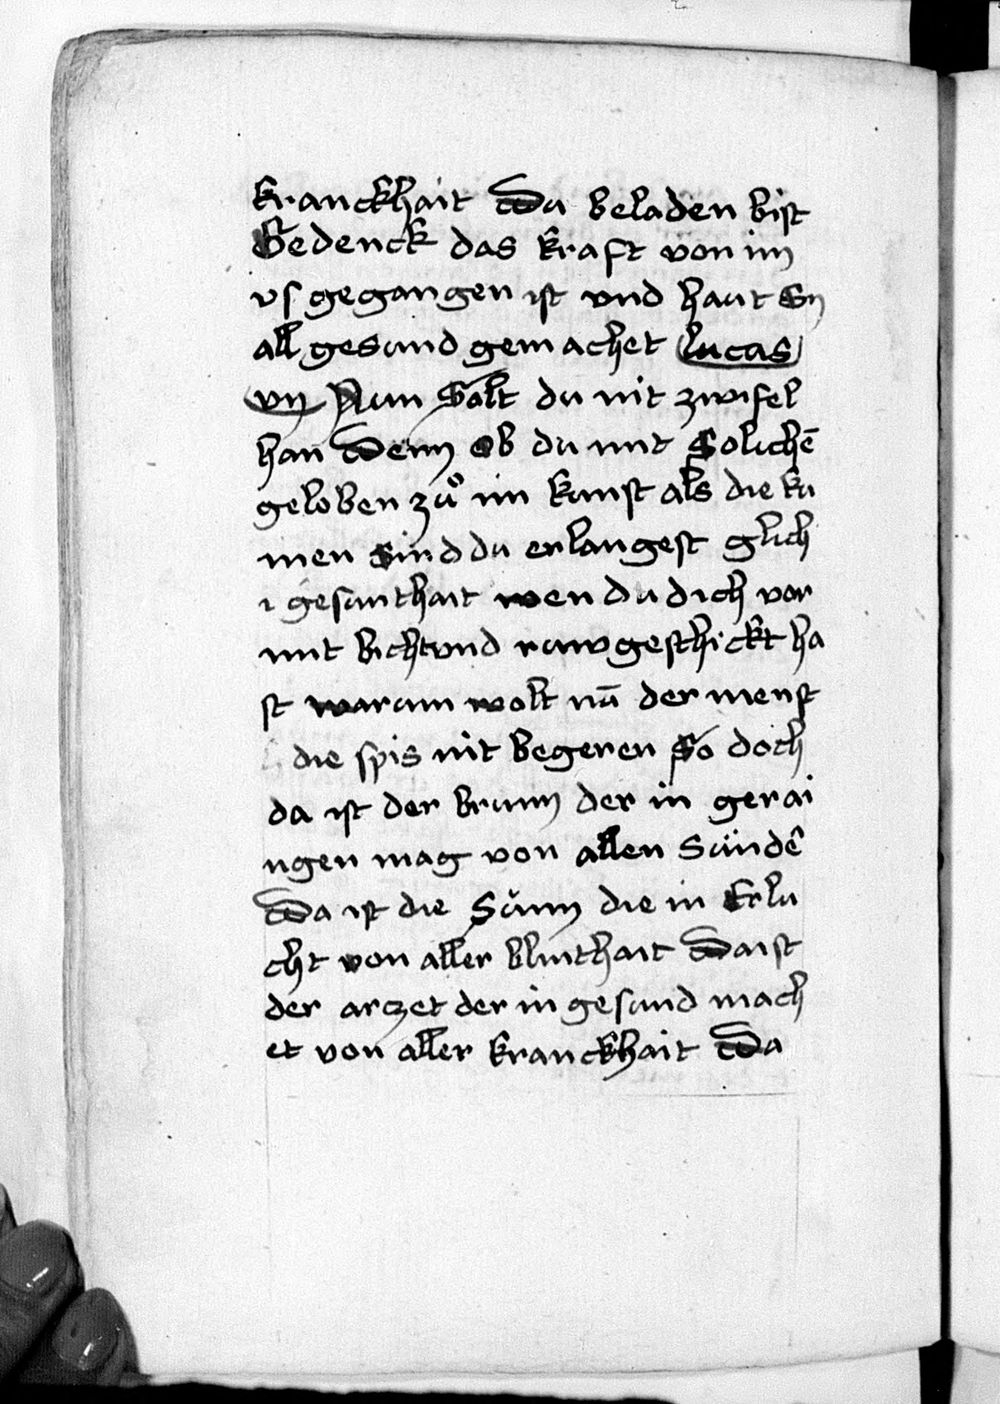 kranckhait Du beladen bist
Gedenck das kraft von im
vs gegangen ist vnd haut Sy
all gesund gemachet lucas
vij Nun Solt du nit zwifel
han Denn Ob du mit Solichē
geloben zů im kunst als die ku
men Sind du erlangest glich
i gesunthait wen du dich vor
mit bicht vnd ruw geschickt ha
st warum wolt nū der menst
die spis nit begeren So doch
da ist der brunn der in gerai
ngen mag von allen Sündē
Da ist die Sünn die in Erlu
cht von aller blinthait Da ist
der arczet der in gesund mach
et von aller kranckhait Da